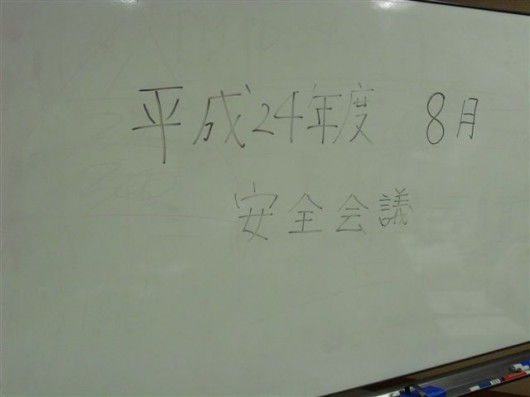 平成24年度 8月
安全会議